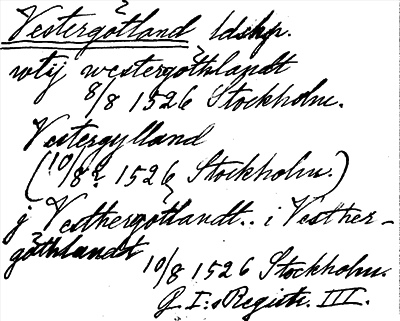 Vestergötland ldskp.
wtij westergöthlandt
8/8 1526 Stockholm.
Vestergylland
(10/8? 1526 Stockholm.)
j Vesthergötlandt.. i Vesther-
göthlandt
10/8 1526 Stockholm.
G. I:s Registr. III.